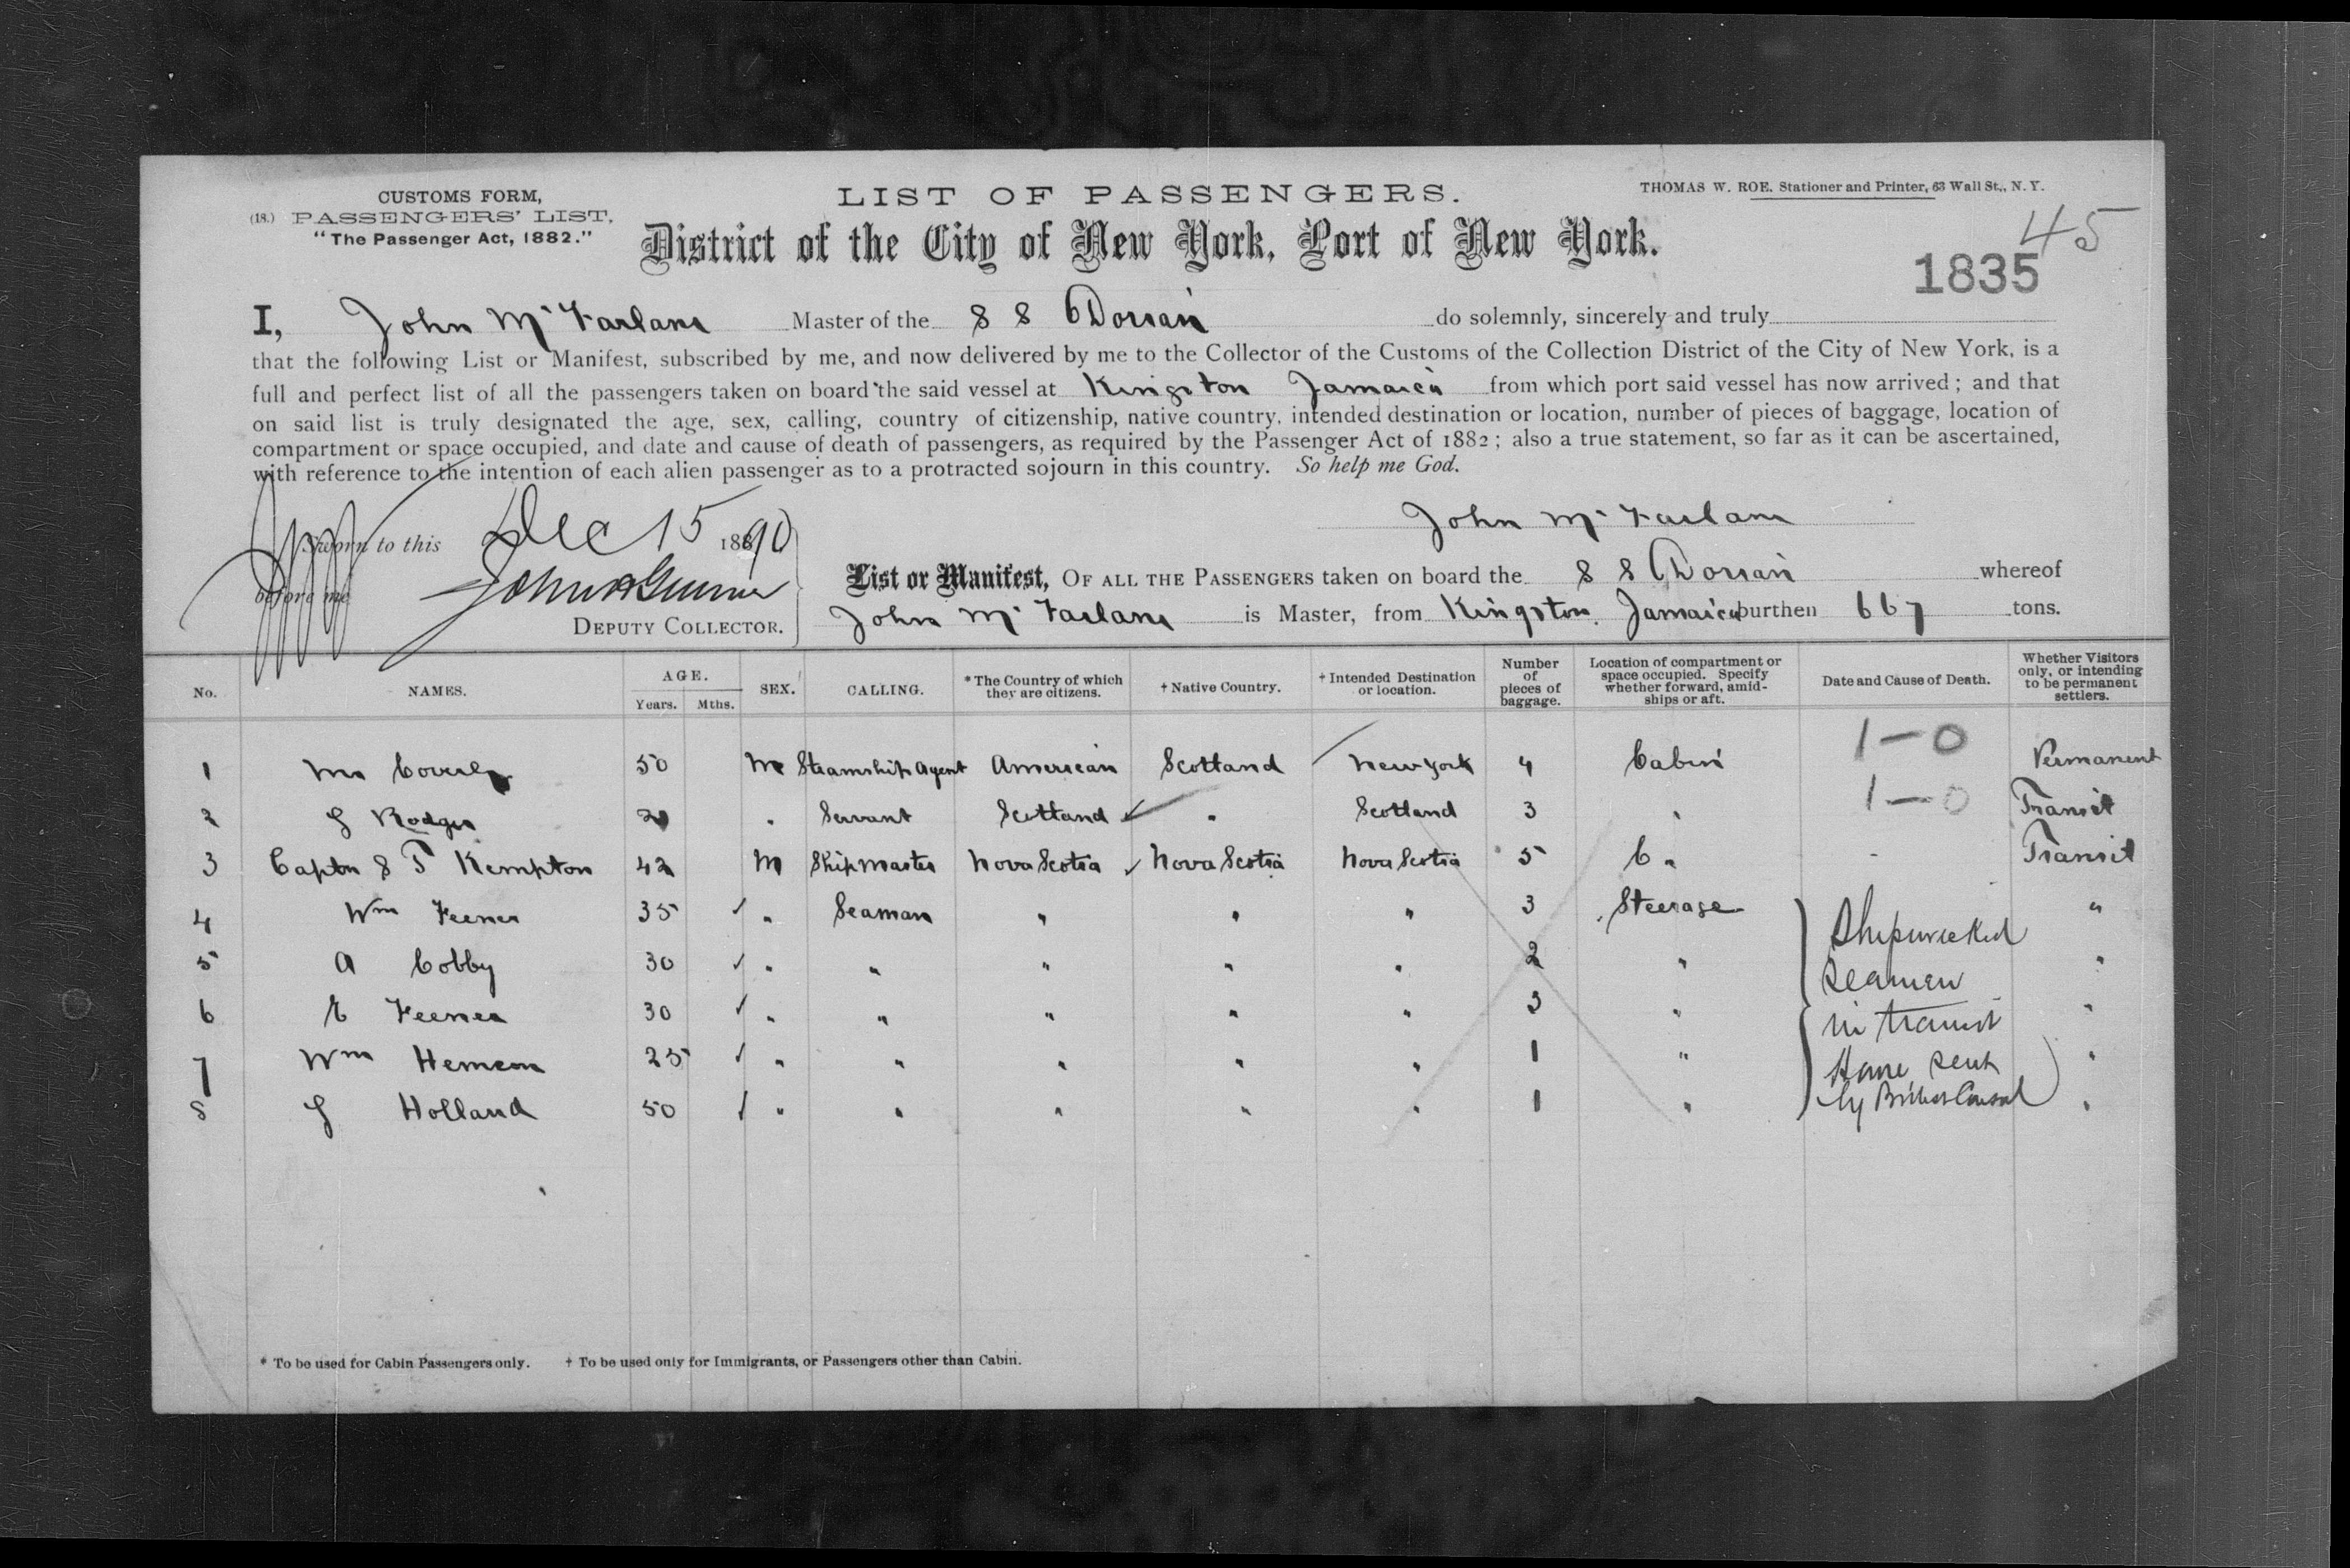 CUSTOMS FORM,
(18.) PASSENGERS' LIST,
"The Passenger Act, 1882."
LIST OF PASSENGERS.
THOMAS W. ROE. Stationer and Printer, 63 Wall St., N. Y.
District of the City of New York, Port of New York.
45
1835
I, John McFarlane Master of the S S Dorian do solemnly, sincerely and truly
that the following List or Manifest, subscribed by me, and now delivered by me to the Collector of the Customs of the Collection District of the City of New York, is a
full and perfect list of all the passengers taken on board the said vessel at Kingston Jamaica from which port said vessel has now arrived; and that
on said list is truly designated the age, sex, calling, country of citizenship, native country, intended destination or location, number of pieces of baggage, location of
compartment or space occupied, and date and cause of death of passengers, as required by the Passenger Act of 1882; also a true statement, so far as it can be ascertained,
with reference to the intention of each alien passenger as to a protracted sojourn in this country. So help me God.
John McFarlane
Sworn to this Dec 15 1890
before me
DEPUTY COLLECTOR.
List or Manifest, OF ALL THE PASSENGERS taken on board the S S Dorian whereof
John McFarlane is Master, from Kingston, Jamaica burthen 667 tons.
No. NAMES. AGE. Years. Mths. SEX. CALLING. *The Country of which they are citizens. †Native Country. †Intended Destination or location. Number of pieces of baggage. Location of compartment or space occupied. Specify whether forward, amidships or aft. Date and Cause of Death. Whether Visitors only, or intending to be permanent settlers.
1 Mr Coverly 50 M Steamship Agent American Scotland New York 4 Cabin 1-0 Permanent
2 G Rodger " Servant Scotland " Scotland 3 " 1-0 Transit
3 Captn S T Kempton 42 M Ship Master Nova Scotia Nova Scotia Nova Scotia 5 C " - Transit
4 Wm Feener 35 " Seaman " " " 3 Steerage "
5 A Cobby 30 " " " " " 2 " "
6 E Feener 30 " " " " " 3 " "
7 Wm Hemeon 25 " " " " " 1 " "
8 G Holland 50 " " " " " 1 " "
Shipwrecked
Seamen
in transit
Home sent
by British Consul
* To be used for Cabin Passengers only. † To be used only for Immigrants, or Passengers other than Cabin.